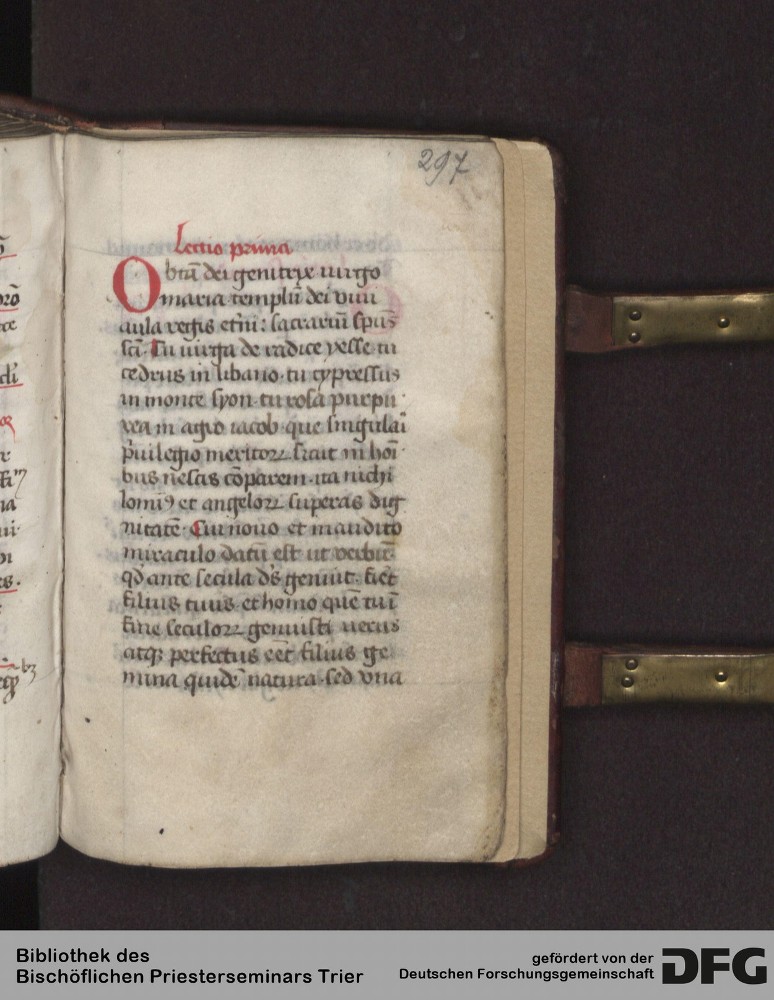 297
Lectio prima
O btā dei genitrix uirgo
maria templū dei viui
aula regis et̄ni: sacrariū spūs
sc̄i. Tu uirga de radice yesse tu
cedrus in libano. tu cypressus
in monte syon. tu rosa purpu
rea in agro iacob. que singulai
p̄uilegio meritoꝝ sicut in hoī
bus nescis cōparem. ita nichi
lomiꝰ et angeloꝝ superas dig
nitatē. Cui nouo et inaudito
miraculo datū est ut verbū
qd̄ ante secula ds̄ genuit. fiet
filius tuus. et homo quē tu ī
fine seculoꝝ genuisti uerus
atqꝫ perfectus eēt filius ge
mina quidē natura. sed vna
Bibliothek des
Bischöflichen Priesterseminars Trier
gefördert von der
Deutschen Forschungsgemeinschaft
DFG